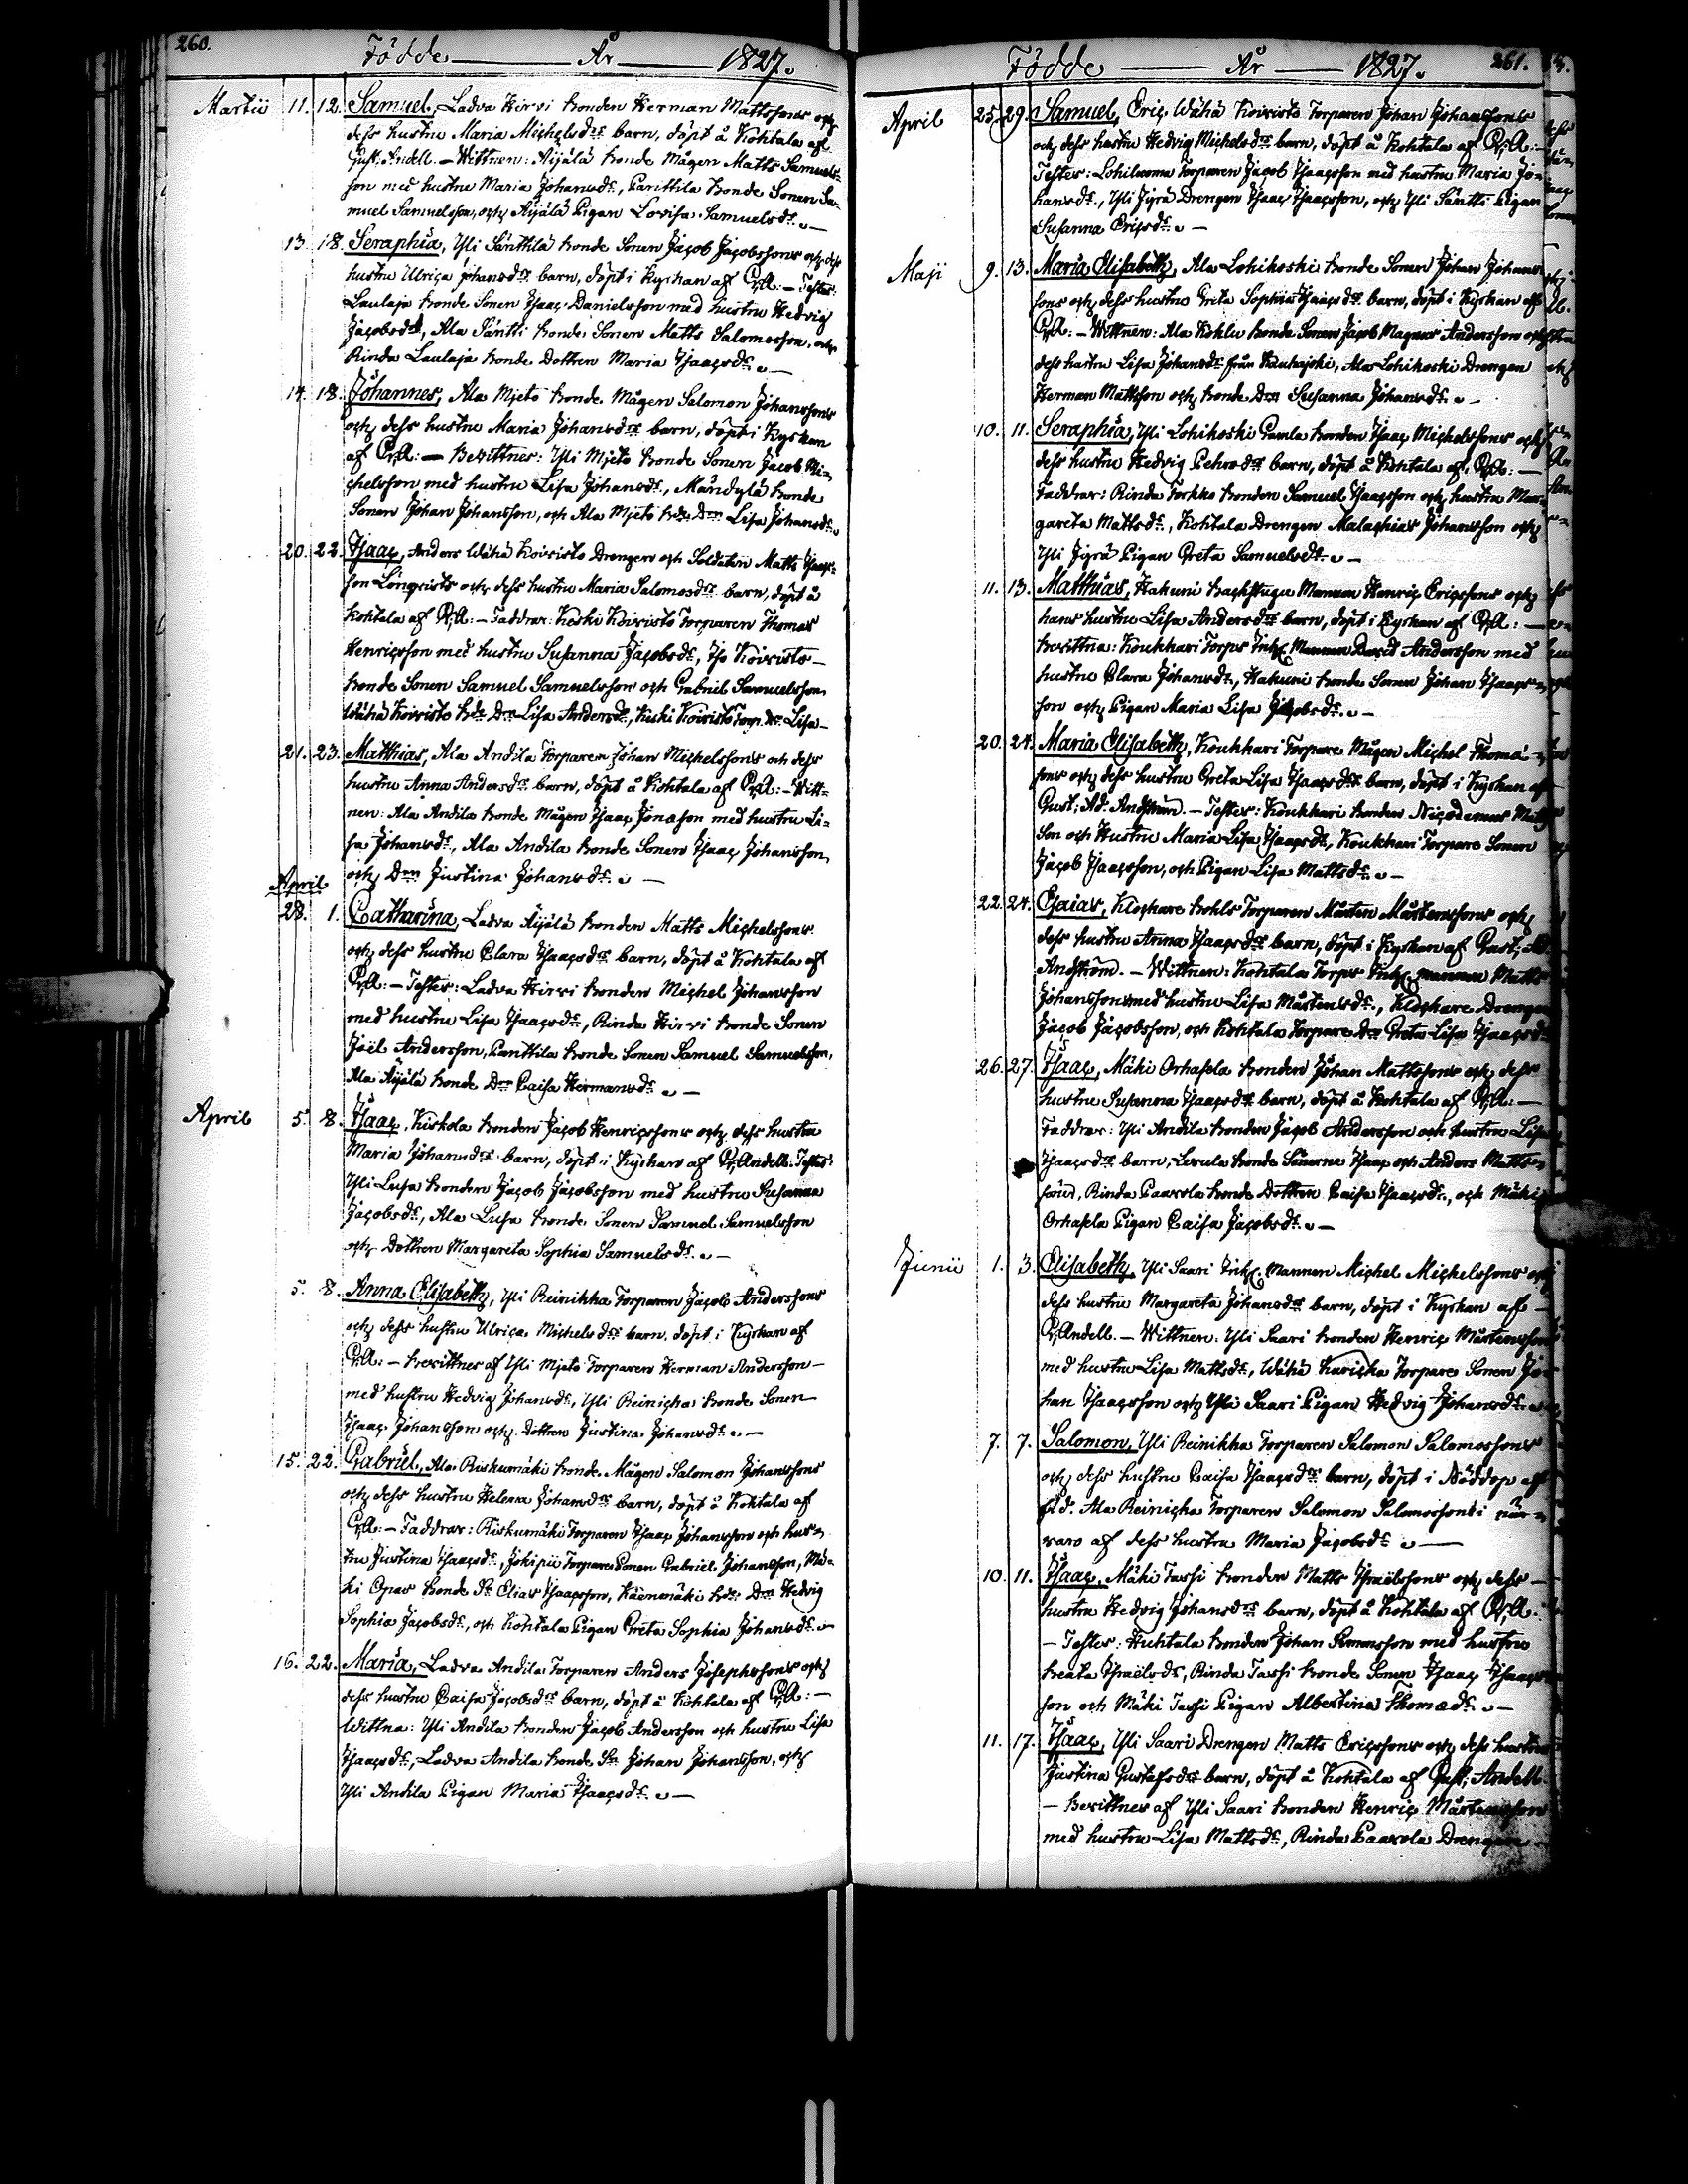 260.
Födde År 1827.
Martii 11. 12. Samuel, Ladva Hirvi bonden Herman Mattssons och
dess hustru Maria Michelsdrs barn, döpt å Kohtala af
Gust. Andell. – Wittnen: Äijälä bonde Mågen Matts Samuels-
son med hustru Maria Johansdr, Panttila bonde Sonen Sa-
muel Samuelsson, och Äijälä Pigan Lovisa Samuelsdr. –
13. 18. Seraphia, Yli Sänttilä bonde Sonen Jacob Jacobssons och dess
hustru Ulrica Johansdrs barn, döpt i Kyrkan af G;A: – Testes:
Laulaja bonde Sonen Isaac Danielsson med hustru Hedvig
Jacobsdr, Ala Säntti bonde Sonen Matts Salomosson, och
Rinda Laulaja bonde Dottren Maria Isaacsdr. –
14. 18. Johannes, Ala Mjeto bonde Mågen Salomon Johanssons
och dess hustru Maria Johansdrs barn, döpt i Kyrkan
af G;A: – Bevittnes: Yli Mjeto bonde Sonen Jacob Mi-
chelsson med hustru Lisa Johansdr, Mändylä bonde
Sonen Johan Johansson, och Ala Mjeto bde Drn Lisa Johansdr.
20. 22. Isaac, Anders Wähä Koivisto Drengen och Soldaten Matts Isacs-
son Lönqvists och dess hustru Maria Salomosdrs barn, döpt å
Kohtala af G;A: – Faddrar: Keski Koivisto Torparen Thomas
Henricsson med hustru Susanna Jacobsdr, Iso Koivisto –
bonde Sonen Samuel Samuelsson och Gabriel Samuelsson,
Wähä Koivisto bde Drn Lisa Andersdr, Keski Koivisto Torp. Dr Lisa –
21. 23. Matthias, Ala Andila Torparen Johan Michelssons och dess
hustru Anna Andersdrs barn, döpt å Kohtala af G;A: – Witt-
nen: Ala Andila bonde Mågen Isaac Jonasson med hustru Li-
sa Johansdr, Ala Andila bonde Sonen Isaac Johansson,
och Drn Justina Johansdr. –
April
28. 1. Catharina, Ladva Äijälä bonden Matts Michelssons
och dess hustru Clara Isaacsdrs barn, döpt å Kohtala af
G;A: – Testes: Ladva Hirvi bonden Michel Johansson
med hustru Lisa Isaacsdr, Rinda Hirvi bonde Sonen
Joël Andersson, Panttila bonde Sonen Samuel Samuelsson,
Ala Äijälä bonde Drn Caisa Hermansdr. –
April 5. 8. Isaac, Kiskola bonden Jacob Henricssons och dess hustru
Maria Johansdrs barn, döpt i Kyrkan af G;Andell. Testes:
Yli Lusa bonden Jacob Jacobsson med hustru Susanna
Jacobsdr, Ala Lusa bonde Sonen Samuel Samuelsson
och Dottren Margareta Sophia Samuelsdr. –
5. 8. Anna Elisabeth, Yli Reinikka Torparen Jacob Anderssons
och dess hustru Ulrica Michelsdrs barn, döpt i Kyrkan af
G;A: – bevittnes af Yli Mjeto Torparen Herman Andersson –
med hustru Hedvig Johansdr, Yli Reinicka bonde Sonen
Isaac Johansson och Dottren Justina Johansdr. –
15. 22. Gabriel, Ala Riskumäki bonde Mågen Salomon Johanssons
och dess hustru Helena Johansdrs barn, döpt å Kohtala af
G;A: – Faddrar: Riskumäki Torparen Isaac Johansson och hus-
tru Justina Isaacsdr, Jokipii Torpare Sonen Gabriel Johansson, Mä-
ki Opas bonde Sn Elias Isaacsson, Käenmäki bde Drn Hedvig
Sophia Jacobsdr, och Kohtala Pigan Greta Sophia Johansdr. –
16. 22. Maria, Ladva Andila Torparen Anders Josephssons och
dess hustru Caisa Jacobsdrs barn, döpt å Kohtala af G;A: –
Wittna: Yli Andila bonden Jacob Andersson och hustru Lisa
Isaacsdr, Ladva Andila bonde Sn Johan Johansson, och
Yli Andila Pigan Maria Isaacsdr. –
261.
Födde År 1827.
April 25. 29. Samuel, Eric Wähä Koivisto Torparen Johan Johanssons
och dess hustru Hedvig Michelsdrs barn, döpt å Kohtala af G;A: –
Testes: Lohiluoma Torparen Jacob Isaacsson med hustru Maria Jo-
hansdr, Yli Jyrä Drengen Isaac Isaacsson, och Yli Säntti Pigan
Susanna Ericsdr. –
Maji 9. 13. Maria Elisabeth, Ala Lohikoski bonde Sonen Johan Johans-
sons och dess hustru Greta Sophia Isaacsdrs barn, döpt i Kyrkan af
G;A: – Wittnen: Ala Kokko bonde Sonen Jacob Magnus Andersson och
dess hustru Lisa Johansdr från Kauhajoki, Ala Lohikoski Drengen
Herman Mattsson och bonde Drn Susanna Johansdr. –
10. 11. Seraphia, Yli Lohikoski Gamla bonden Isaac Michelssons och
dess hustru Hedvig Pehrsdrs barn, döpt å Kohtala af G;A: –
Faddrar: Rinda Torkko bonden Samuel Isaacsson och hustru Mar-
gareta Mattsdr, Kohtala Drengen Malachias Johansson och
Yli Jyrä Pigan Greta Samuelsdr. –
11. 13. Matthias, Hakuni Backstugu Mannen Henric Ericssons och
hans hustru Lisa Andersdrs barn, döpt i Kyrkan af G;A: –
bevittna: Koukkari Torps Inh. Mannen David Andersson med
hustru Clara Johansdr, Hakuni bonde Sonen Johan Isaacs-
son och Pigan Maria Lisa Jacobsdr. –
20. 24. Maria Elisabeth, Koukkari Torpare Mågen Michel Thomæ-
sons och dess hustru Greta Lisa Isaacsdrs barn, döpt i Kyrkan af
Gust: Ad: Andström. – Testes: Koukkari bonden Nicodemus Matts
Son och Hustru Maria Lisa Isaacsdr, Koukkari Torpare Sonen
Jacob Isaacsson, och Pigan Lisa Mattsdr. –
22. 24. Esaias, Klockare bohls Torparen Mårten Mårtenssons och
dess hustru Anna Isaacsdrs barn, döpt i Kyrkan af Gust; Ad
Andström. – Wittnen: Kohtala Torps Inh. mannen Matts
Johansson med hustru Lisa Mårtensdr, Klockare Drengen
Jacob Jacobsson, och Kohtala Torpare Drn Greta Lisa Isaacsdr.
26. 27. Isaac, Mäki Orhasela bonden Johan Mattssons och dess
hustru Susanna Isaacsdrs barn, döpt å Kohtala af G;A: –
Faddrar: Yli Andila bonden Jacob Andersson och hustru Lisa
Isaacsdrs barn, Levula bonde Sönerne Isaac och Anders Matts-
söner, Rinda Paavola bonde Dottren Caisa Isaacsdr, och Mäki
Orhasela Pigan Caisa Jacobsdr. –
Junii 1. 3. Elisabeth, Yli Saari Inh. Mannen Michel Michelssons och
dess hustru Margareta Johansdrs barn, döpt i Kyrkan af –
G;Andell. – Wittnen: Yli Saari bonden Henric Mårtensson
med hustru Lisa Mattsdr, Wähä Karicka Torpare Sonen Jo-
han Isaacsson och Yli Saari Pigan Hedvig Johansdr. –
7. 7. Salomon, Yli Reinikka Torparen Salomon Salomossons
och dess hustru Caisa Isaacsdrs barn, döpt i Nöddop af
f.d. Ala Reinicka Torparen Salomon Salomosson i när-
varo af dess hustru Maria Jacobsdr. –
10. 11. Isaac, Mäki Tassi bonden Matts Israëlssons och dess –
hustru Hedvig Johansdrs barn, döpt å Kohtala af G;A:
– Testes: Huhtala bonden Johan Simonsson med hustru
Beata Israëlsdr, Rinda Tassi bonde Sonen Isaac Isaacs-
son och Mäki Tassi Pigan Albertina Thomædr. –
11. 17. Isaac, Yli Saari Drengen Matts Ericssons och dess hustru
Justina Gustafsdrs barn, döpt å Kohtala af Gust; Andell.
– bevittnes af Yli Saari bonden Henric Mårtensson
med hustru Lisa Mattsdr, Rinda Paavola Drengen